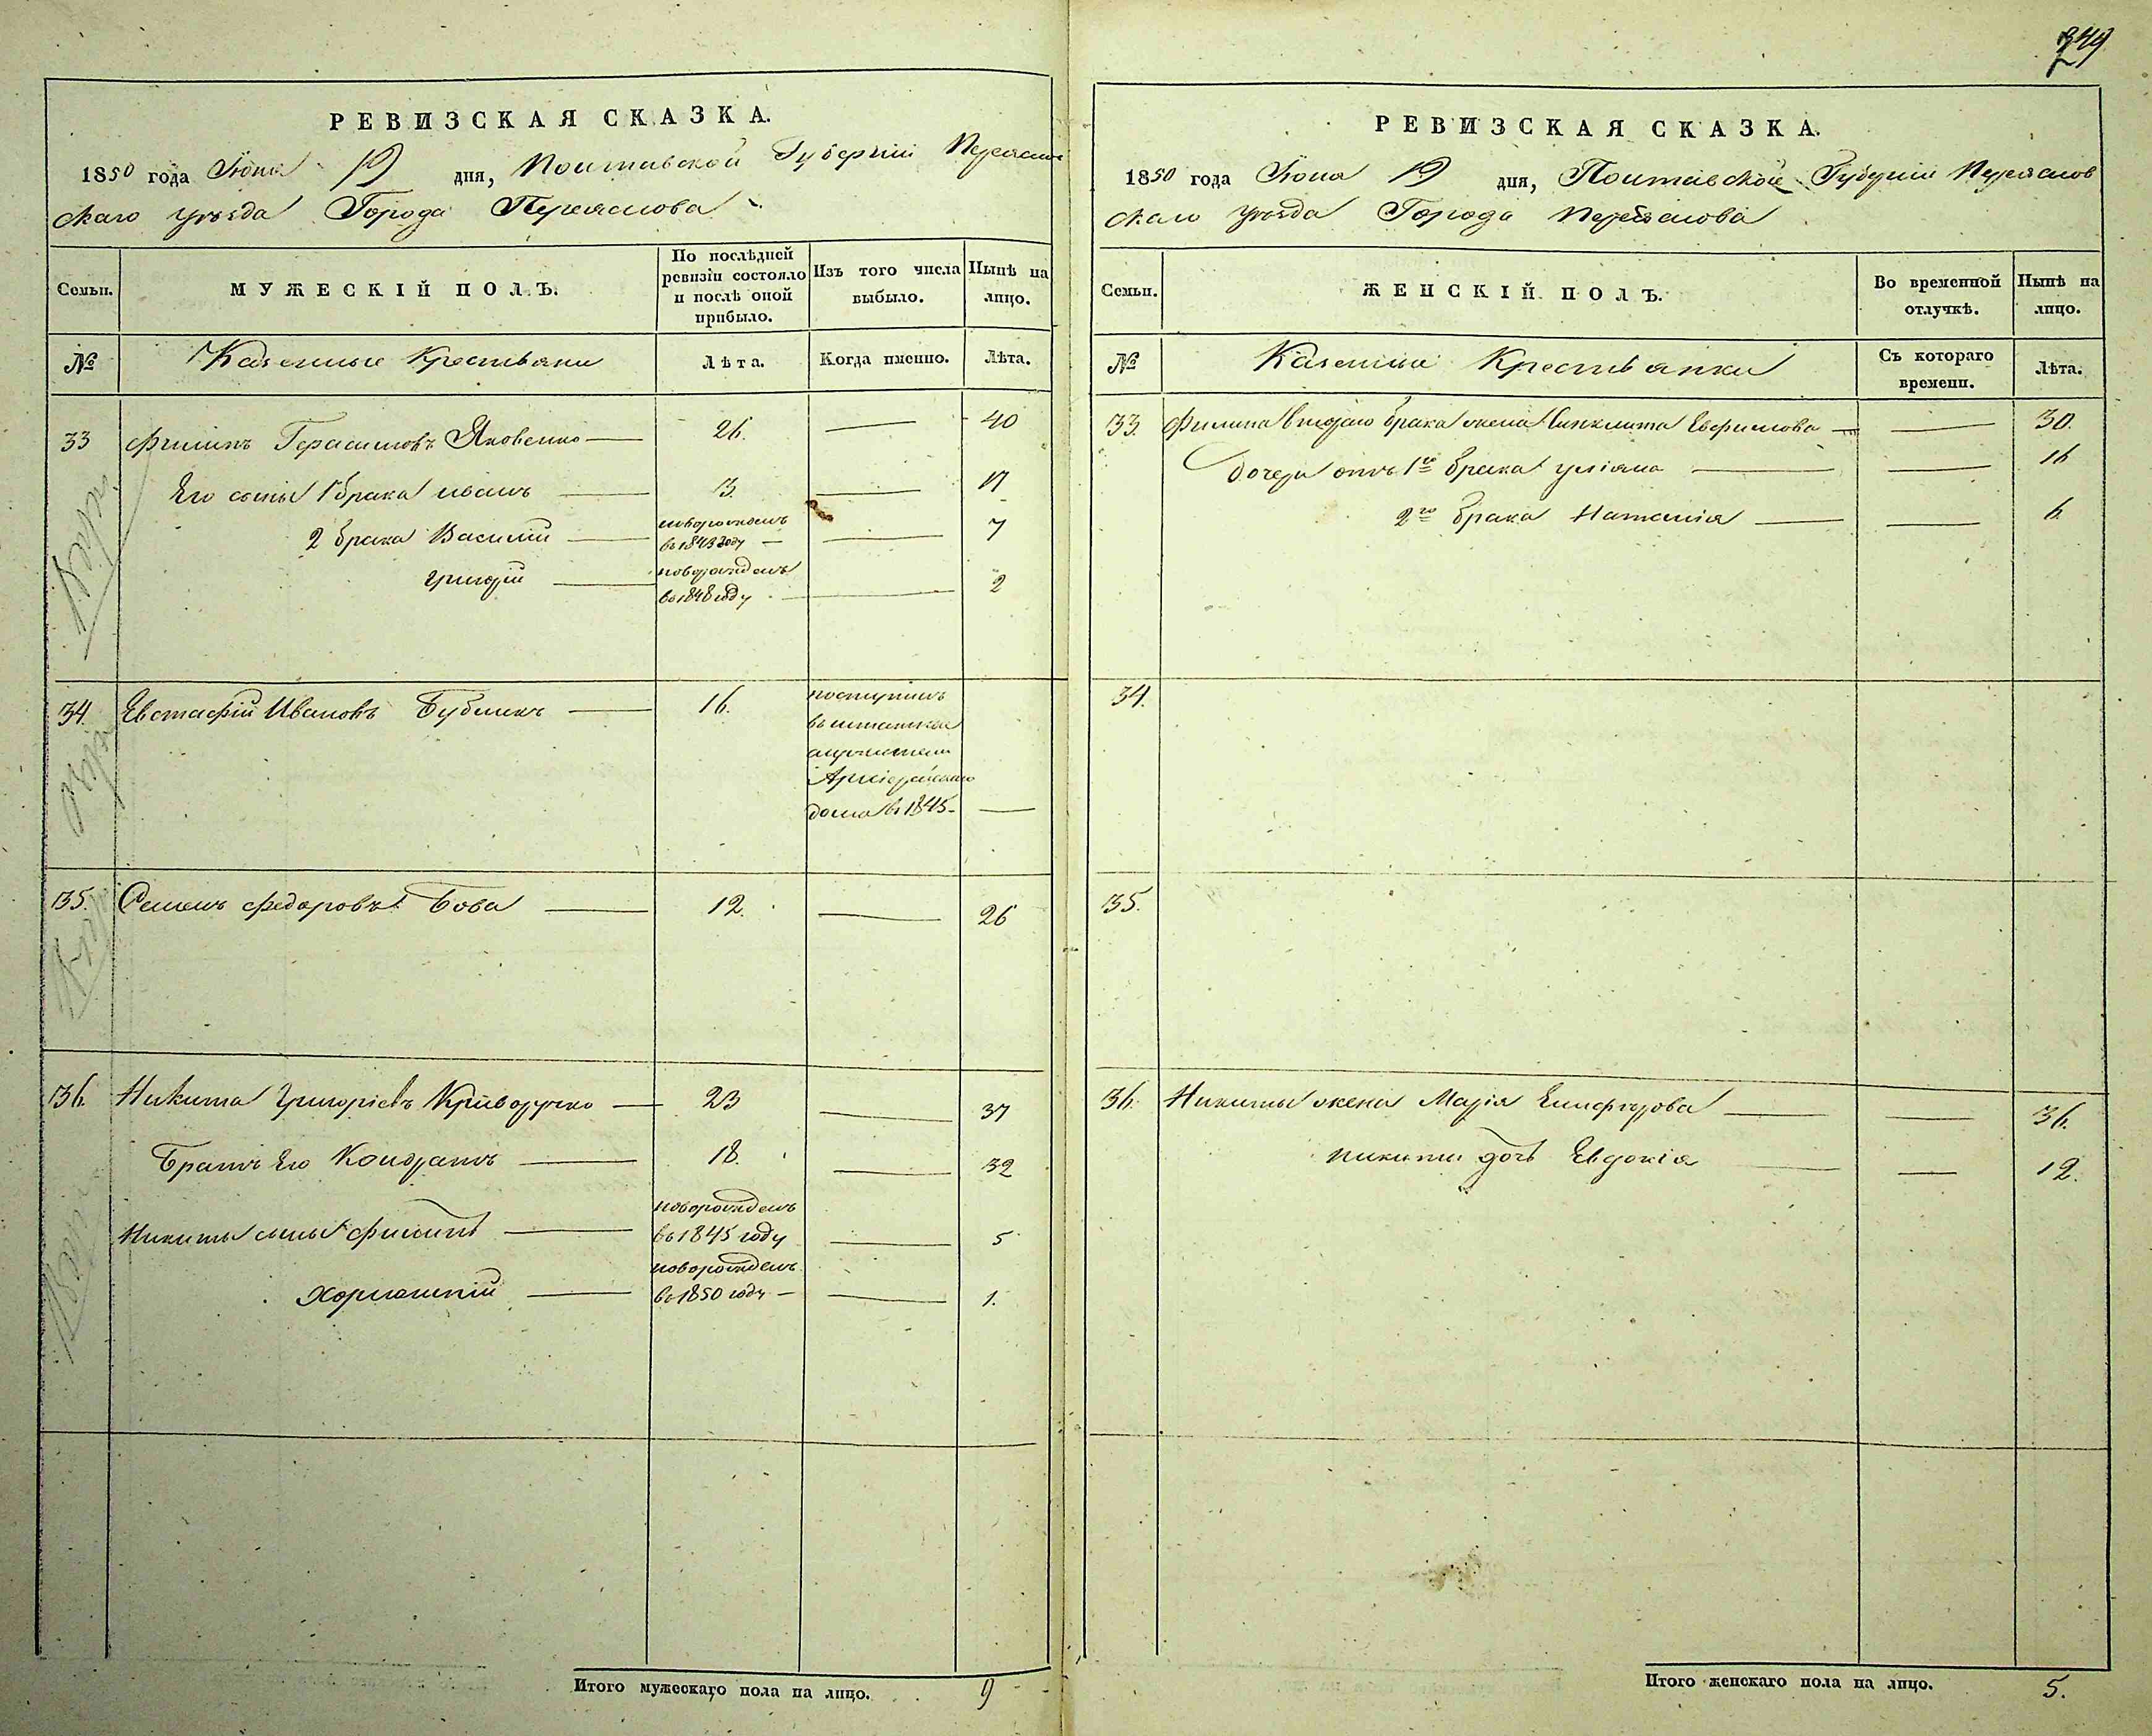 249
РЕВИЗСКАЯ СКАЗКА.
1850 года Іюня 19 дня, Полтавской Губерніи Переяслов
скаго уѣзда Города Переяслова
Семьи. МУЖЕСКІЙ ПОЛЪ. По послѣдней ревизіи состояло и послѣ оной прибыло. Изъ того числа выбыло. Нынѣ на лицо.
№ Казенные Крестьяне Лѣта. Когда именно. Лѣта.
33 Филипъ Герасимовъ Яковенко 26. 40
Его сыны 1 брака иванъ 3. 17
2 брака Василій новорожденъ въ 1843 году 7
Григорій новорожденъ въ 1848 году 2
34. Евстафій Ивановъ Бубликъ 16. поступилъ
въ штатные
служители
Архіерейского
дома въ 1845
35. Семенъ Федоровъ Бова 12. 26
36. Никита Григоріевъ Криворучко 23 37
Братъ Его Кондратъ 18. 32
Никиты сыны Филипъ новорожденъ въ 1845 году 5
Харлампій новорожденъ в 1850 году 1.
Итого мужескаго пола на лицо. 9
РЕВИЗСКАЯ СКАЗКА.
1850 года Іюня 19 дня, Полтавской Губерніи Переяслов
скаго уѣзда Города Переяслова
Семьи. ЖЕНСКІЙ ПОЛЪ. Во временной отлучкѣ. Нынѣ на лицо.
№ Казенные Крестьянки Съ котораго времени. Лѣта.
33. Филипа втораго брака жена Синклита Евфимова 30.
Дочери отъ 1го брака уліяна 16
2го брака Наталія 6.
34.
35.
36. Никиты жена Марія 36.
Никиты дочь Евдокія 12.
Итого женскаго пола на лицо. 5.